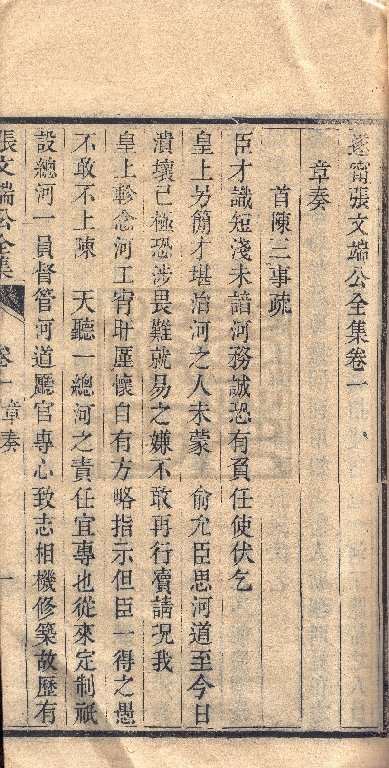 遂寧張文端公全集卷一
章奏
首陳三事疏
臣才識短淺未諳河務誠恐有負任使伏乞
皇上另簡才堪治河之人未蒙　俞允臣思河道至今日
潰壞已極恐涉畏難就易之嫌不敢再行瀆請況我
皇上軫念河工宵旰厪懷自有方略指示但臣一得之愚
不敢不上陳　天聽一總河之責任宜專也從來定制祇
設總河一員督管河道廳官專心致志相機修築故歷有
張文端公全集　卷一　章奏　一